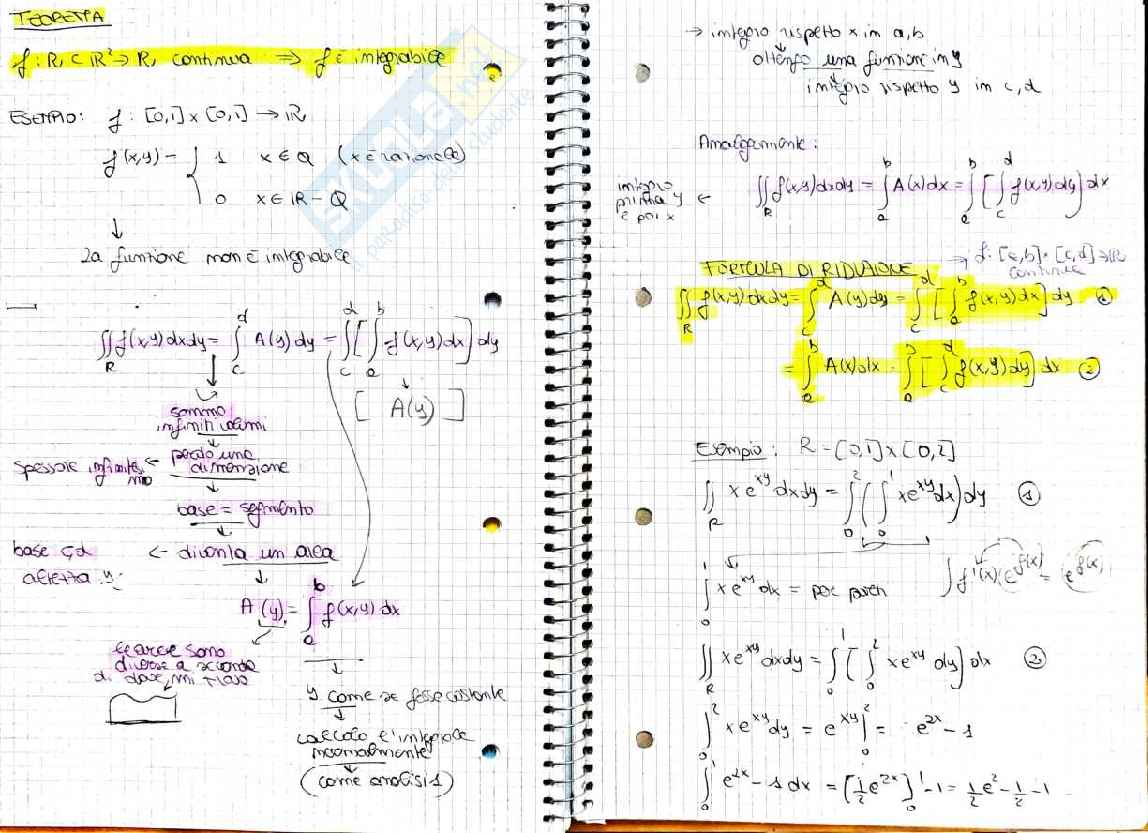 TEOREMA
f : R ⊂ ℝ² → ℝ, continua ⇒ f è integrabile
ESEMPIO: f : [0,1] × [0,1] → ℝ
f(x,y) = { 1 x ∈ Q (x è razionale)
0 x ∈ ℝ − Q
↓
la funzione non è integrabile
∬_R f(x,y) dxdy = ∫_c^d A(y) dy = ∫_c^d [∫_a^b f(x,y) dx] dy
↓
[ A(y) ]
sommo
infiniti volumi
↓
spessore infinitesimo ← perdo una
dimensione
↓
base = segmento
↓
base
altezza y ← diventa un area
↓
A(y) = ∫_a^b f(x,y) dx
le aree sono
diverse a seconda
di dove mi trovo
↓
y come se fosse costante
↓
calcolo l'integrale
normalmente
↓
(come analisi 1)
→ integro rispetto x in a,b
↓
ottengo una funzione in y
↓
integro rispetto y in c,d
Analogamente :
integro
prima y
e poi x ← ∬_R f(x,y) dxdy = ∫_a^b A(x) dx = ∫_a^b [∫_c^d f(x,y) dy] dx
FORMULA DI RIDUZIONE → f : [a,b] × [c,d] → ℝ
continua
∬_R f(x,y) dxdy = ∫_c^d A(y) dy = ∫_c^d [∫_a^b f(x,y) dx] dy ①
= ∫_a^b A(x) dx = ∫_a^b [∫_c^d f(x,y) dy] dx ②
Esempio : R = [0,1] × [0,2]
∬_R x e^{xy} dxdy = ∫_0^2 (∫_0^1 x e^{xy} dx) dy ①
∫_0^1 x e^{xy} dx = per parti ∫ f'(x) (e^{f(x)} = (e^{f(x)}
∬_R x e^{xy} dxdy = ∫_0^1 [∫_0^2 x e^{xy} dy] dx ②
∫_0^2 x e^{xy} dy = e^{xy} |_0^2 = e^{2x} − 1
∫_0^1 e^{2x} − 1 dx = [½ e^{2x}]_0^1 − 1 = ½ e² − ½ − 1
SKUOLA.net
il paradiso dello studente